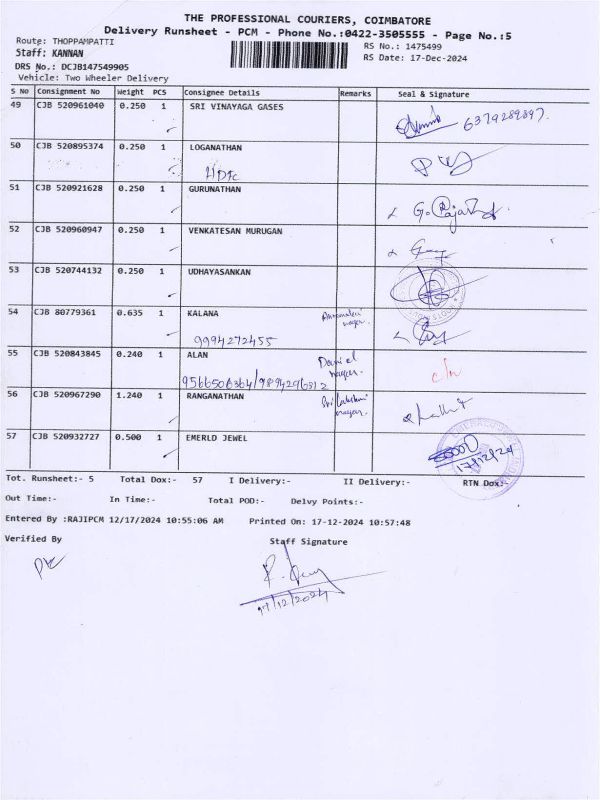 THE PROFESSIONAL COURIERS, COIMBATORE
Delivery Runsheet - PCM - Phone No.:0422-3505555 - Page No.:5
Route: THOPPAMPATTI
RS No.: 1475499
Staff: KANNAN
RS Date: 17-Dec-2024
DRS No.: DCJB147549905
Vehicle: Two Wheeler Delivery
S No Consignment No Weight PCS Consignee Details Remarks Seal & Signature
49 CJB 520961040 0.250 1 SRI VINAYAGA GASES
6379289897.
50 CJB 520895374 0.250 1 LOGANATHAN
HDFC
51 CJB 520921628 0.250 1 GURUNATHAN
52 CJB 520960947 0.250 1 VENKATESAN MURUGAN
53 CJB 520744132 0.250 1 UDHAYASANKAN
54 CJB 80779361 0.635 1 KALANA
nagar.
9994272455
55 CJB 520843845 0.240 1 ALAN Daniel
nagar
56 CJB 520967290 1.240 1 RANGANATHAN Sri Lakshmi
nagar.
57 CJB 520932727 0.500 1 EMERLD JEWEL
17/12/24
Tot. Runsheet:- 5 Total Dox:- 57 I Delivery:- II Delivery:- RTN Dox:-
Out Time:- In Time:- Total POD:- Delvy Points:-
Entered By :RAJIPCM 12/17/2024 10:55:06 AM Printed On: 17-12-2024 10:57:48
Verified By Staff Signature
17/12/2024